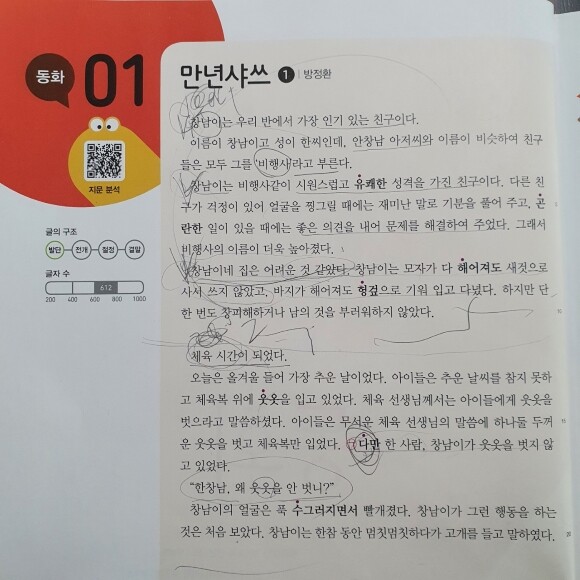 동화
01
지문 분석
글의 구조
발단 전개 절정 결말
글자 수
612
200 400 600 800 1000
만년샤쓰 1 방정환
창남이는 우리 반에서 가장 인기 있는 친구이다.
이름이 창남이고 성이 한씨인데, 안창남 아저씨와 이름이 비슷하여 친구
들은 모두 그를 비행사라고 부른다.
창남이는 비행사같이 시원스럽고 유쾌한 성격을 가진 친구이다. 다른 친
구가 걱정이 있어 얼굴을 찡그릴 때에는 재미난 말로 기분을 풀어 주고, 곤
란한 일이 있을 때에는 좋은 의견을 내어 문제를 해결하여 주었다. 그래서
비행사의 이름이 더욱 높아졌다.
창남이네 집은 어려운 것 같았다. 창남이는 모자가 다 해어져도 새것으로
사서 쓰지 않았고, 바지가 해어져도 헝겊으로 기워 입고 다녔다. 하지만 단
한 번도 창피해하거나 남의 것을 부러워하지 않았다.
10
체육 시간이 되었다.
오늘은 올겨울 들어 가장 추운 날이었다. 아이들은 추운 날씨를 참지 못하
고 체육복 위에 웃옷을 입고 있었다. 체육 선생님께서는 아이들에게 웃옷을
벗으라고 말씀하셨다. 아이들은 무서운 체육 선생님의 말씀에 하나둘 두꺼
15
운 웃옷을 벗고 체육복만 입었다. 다만 한 사람, 창남이가 웃옷을 벗지 않
고 있었다.
“한창남, 왜 웃옷을 안 벗니?”
창남이의 얼굴은 푹 수그러지면서 빨개졌다. 창남이가 그런 행동을 하는
것은 처음 보았다. 창남이는 한참 동안 멈칫멈칫하다가 고개를 들고 말하였다.
20